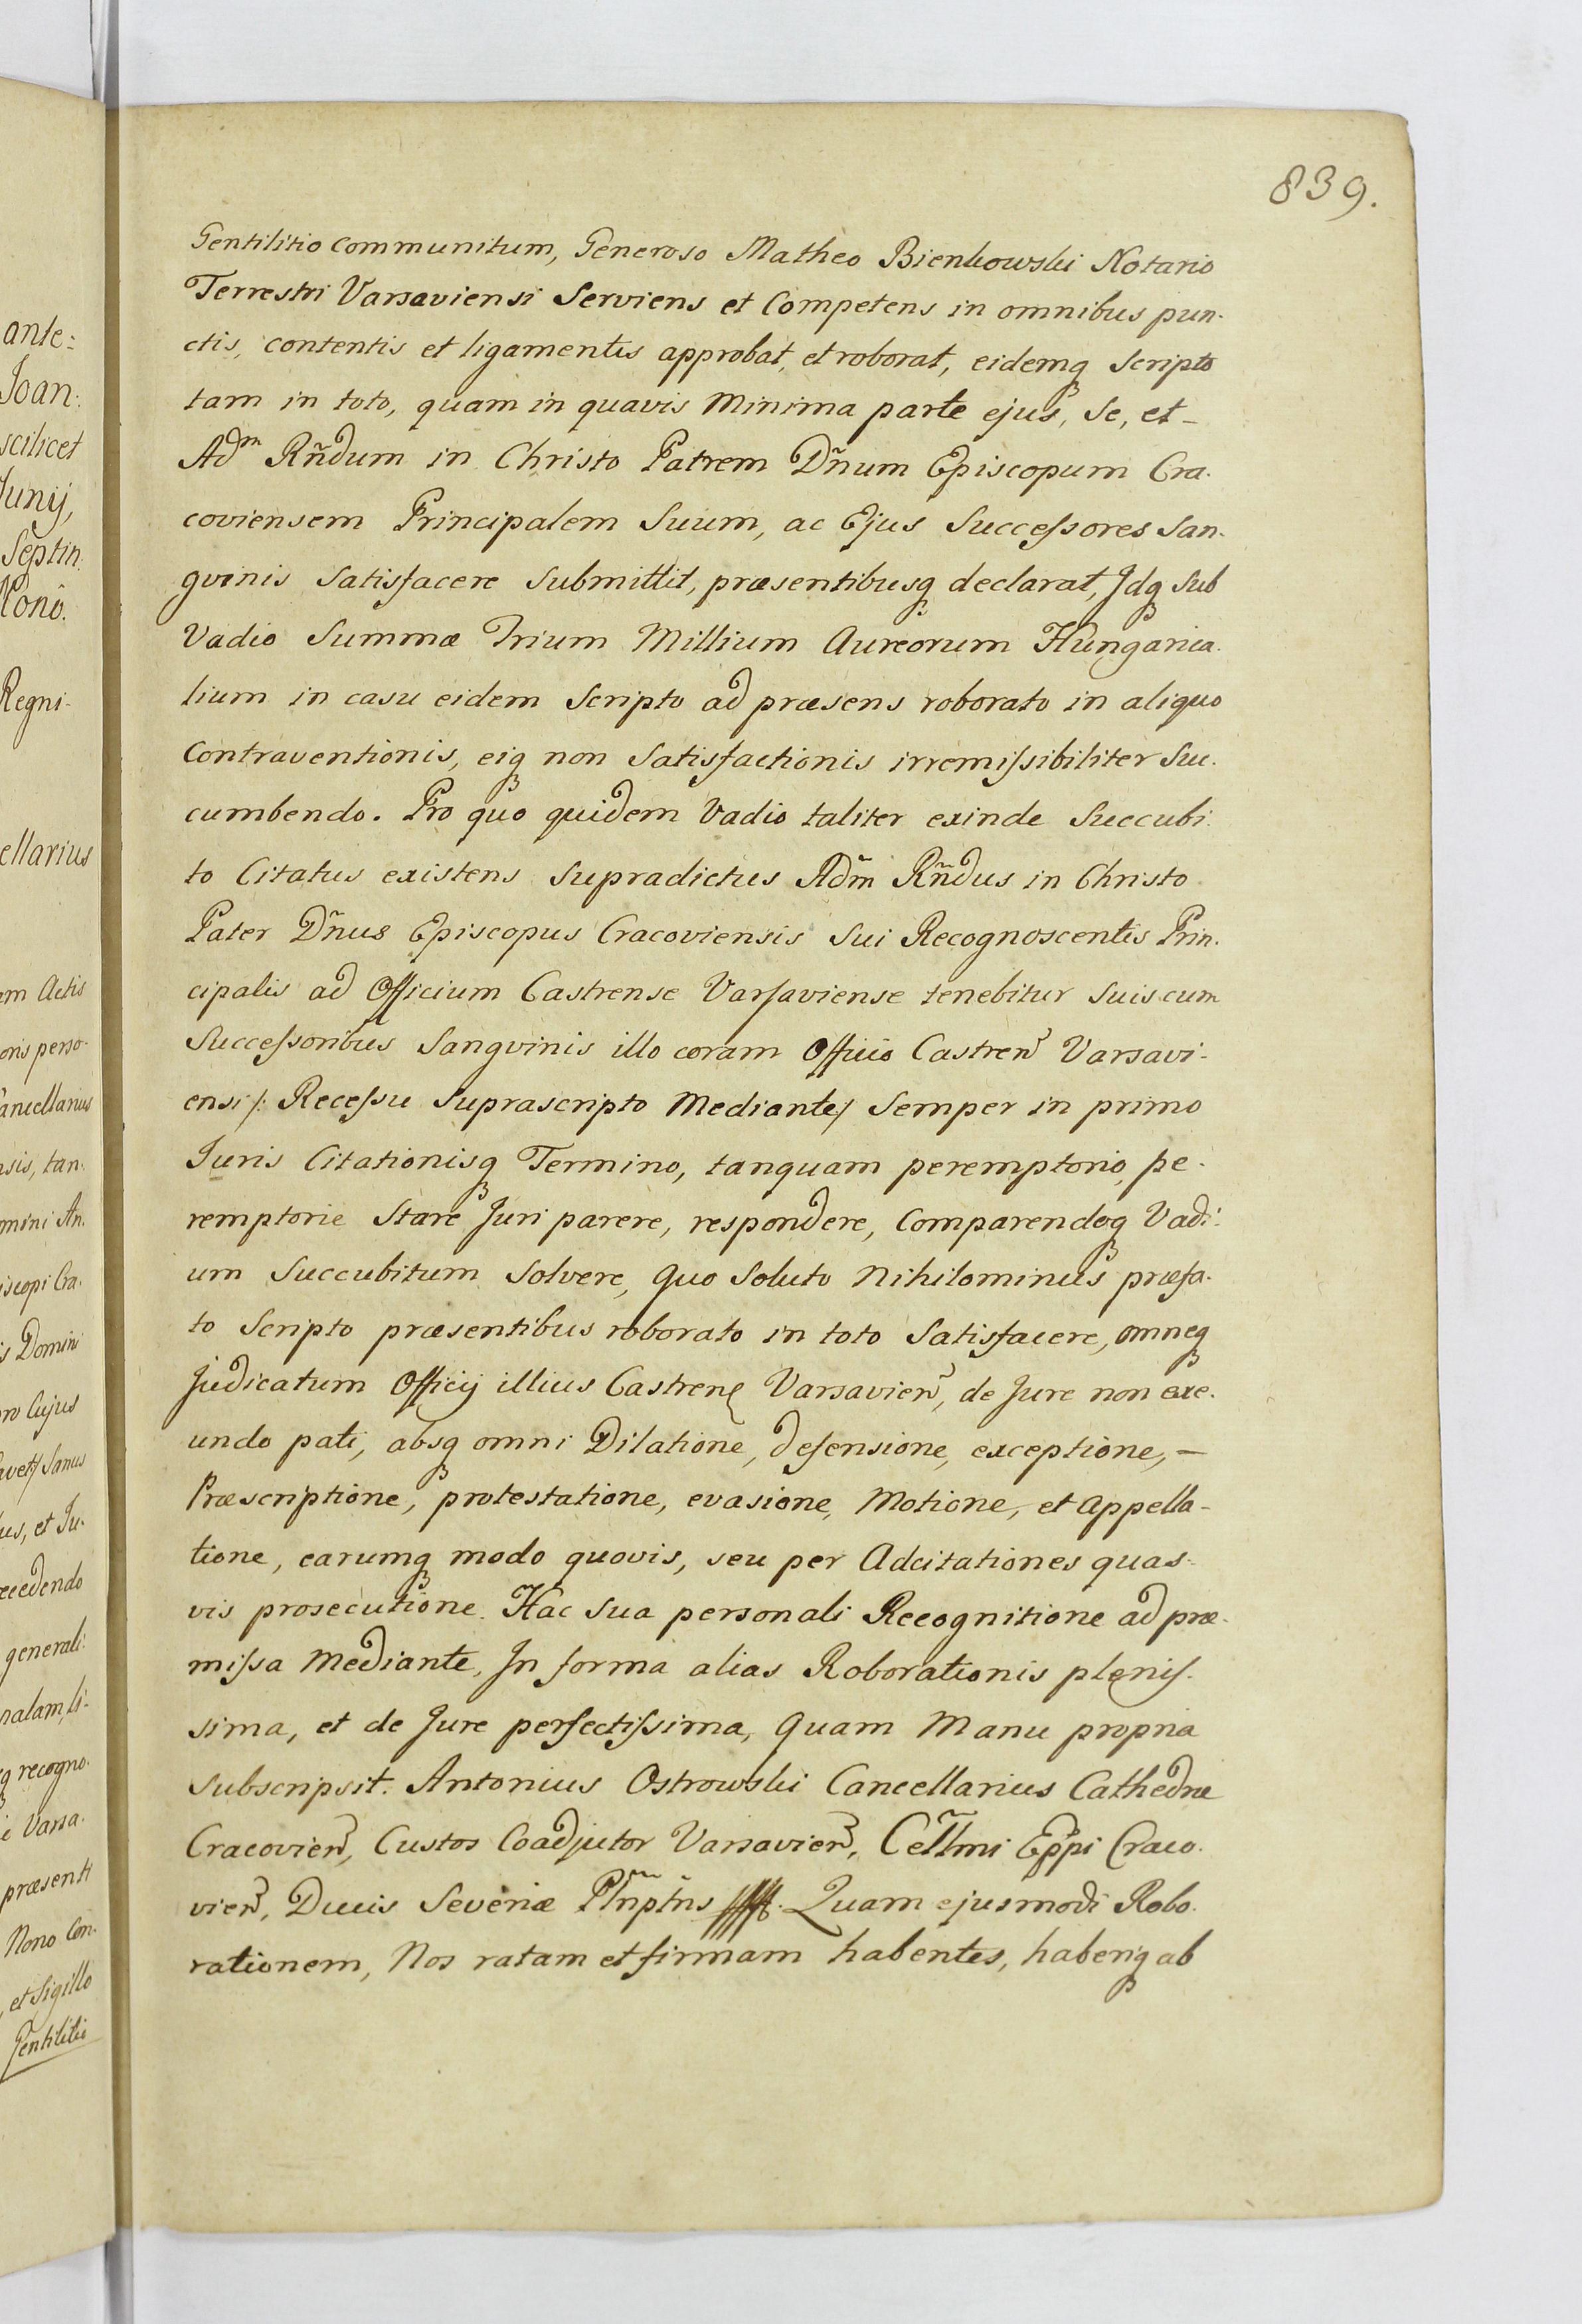 839.
Gentilitio communitum, Generoso Matheo Bienkowski Notario
Terrestri Varsaviensi Serviens et Competens in omnibus pun-
ctis, contentis et ligamentis approbat, et roborat, eidemq́ꝫ Scripto
tam in toto, quam in quavis Minima parte ejus, Se, et –
Adm Rñdum in Christo Patrem Dñum Episcopum Cra-
coviensem Principalem Suum, ac Ejus Succeſsores San-
gvinis Satisfacere Submittit, præsentibusqꝫ declarat, Jdqꝫ Sub
Vadio Summæ Trium Millium Aureorum Hungarica-
lium in casu eidem Scripto ad præsens roborato in aliquo
Contraventionis, eiqꝫ non Satisfactionis irremiſsibiliter Suc-
cumbendo. Pro quo quidem Vadio taliter exinde Succubi-
to Citatus existens Supradictus Adm̃ Rñdus in Christo
Pater Dñus Episcopus Cracoviensis Sui Recognoscentis Prin-
cipalis ad Officium Castrense Varſaviense tenebitur Suis cum
Succeſsoribus Sangvinis illo coram Officio Castren̄ Varsavi-
ensi /: Receſsu Suprascripto Mediante / Semper in primo
Juris Citationisqꝫ Termino, tanquam peremptorio, pe-
remptorie Stare Juri parere, respondere, Comparendoqꝫ Vadi-
um Succubitum Solvere, Quo Soluto Nihilominus præfa-
to Scripto præsentibus roborato in toto Satisfacere, omneqꝫ
Judicatum Officij illius Castren̄ Varsavien̄, de Jure non exe-
undo pati, absqꝫ omni Dilatione, defensione, exceptione, –
Præscriptione, protestatione, evasione, Motione, et Appella-
tione, earumqꝫ modo quovis, seu per Adcitationes quas-
vis prosecutione. Hac Sua personali Recognitione ad præ-
miſsa Mediante, Jn forma alias Roborationis pleniſ-
sima, et de Jure perfectiſsima, Quam Manu propria
Subscripsit. Antonius Ostrowski Cancellarius Cathedræ
Cracovien̄, Custos Coadjutor Varsavien̄, Cell̃mi Ep̃pi Craco-
vien̄, Ducis Severiæ Pl̃nptñs. Quam ejusmodi Robo-
rationem, Nos ratam et firmam habentes, haberiqꝫ ab